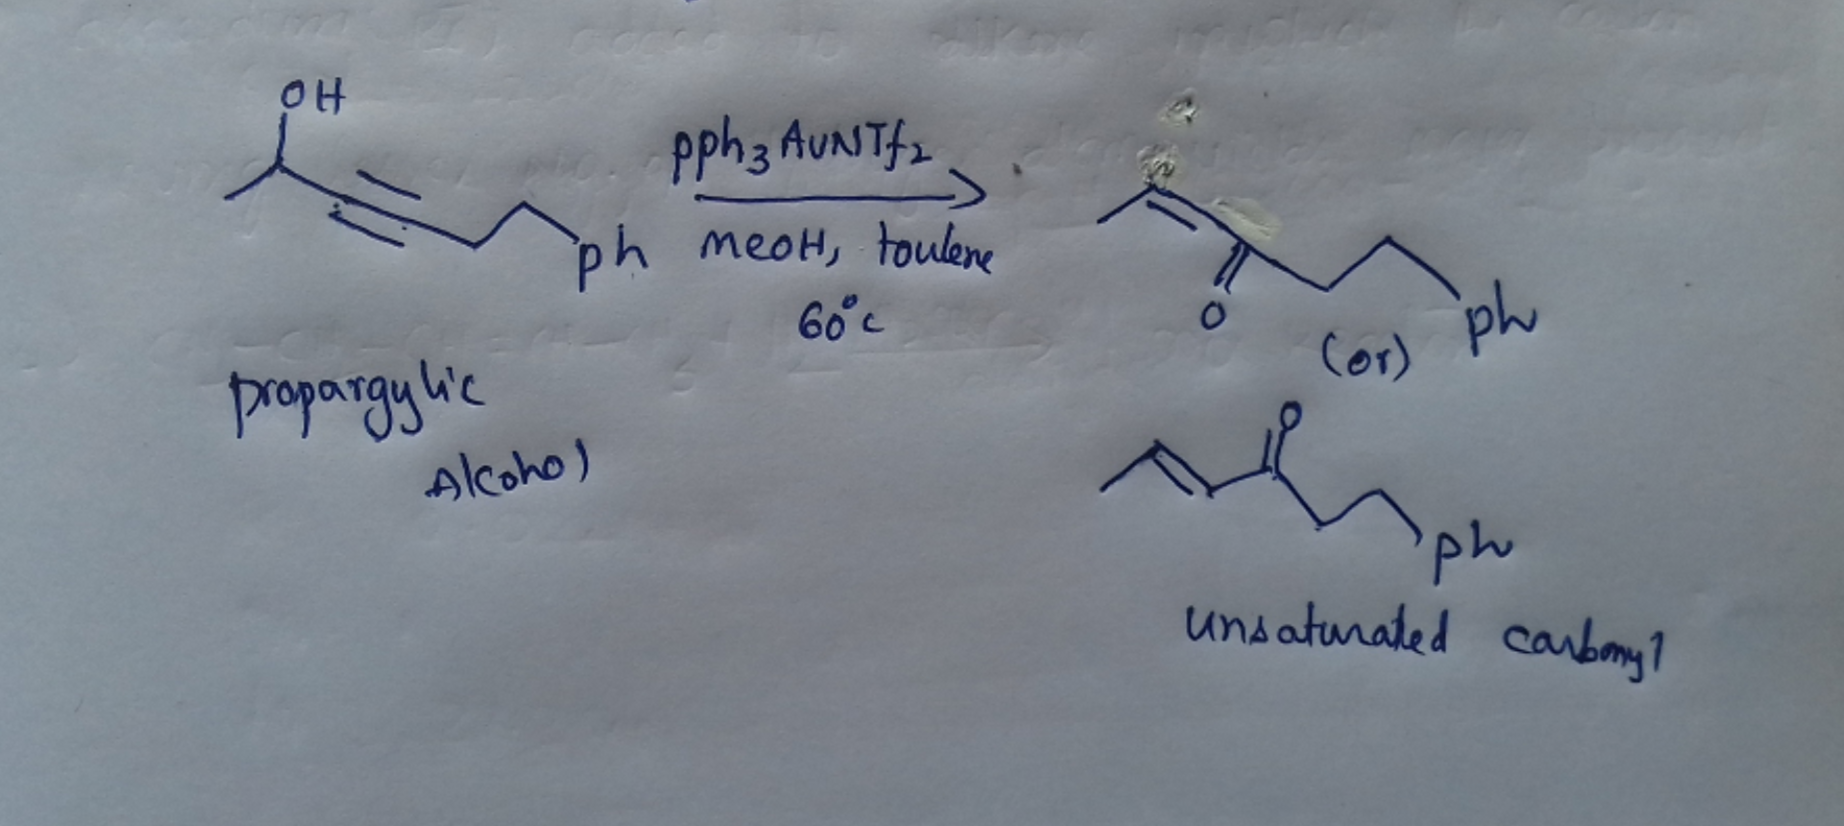 OH
pph3 AuNTf2
meOH, toulene
60°c
ph
O
ph
(or)
propargylic
Alcohol
O
ph
unsaturated carbonyl